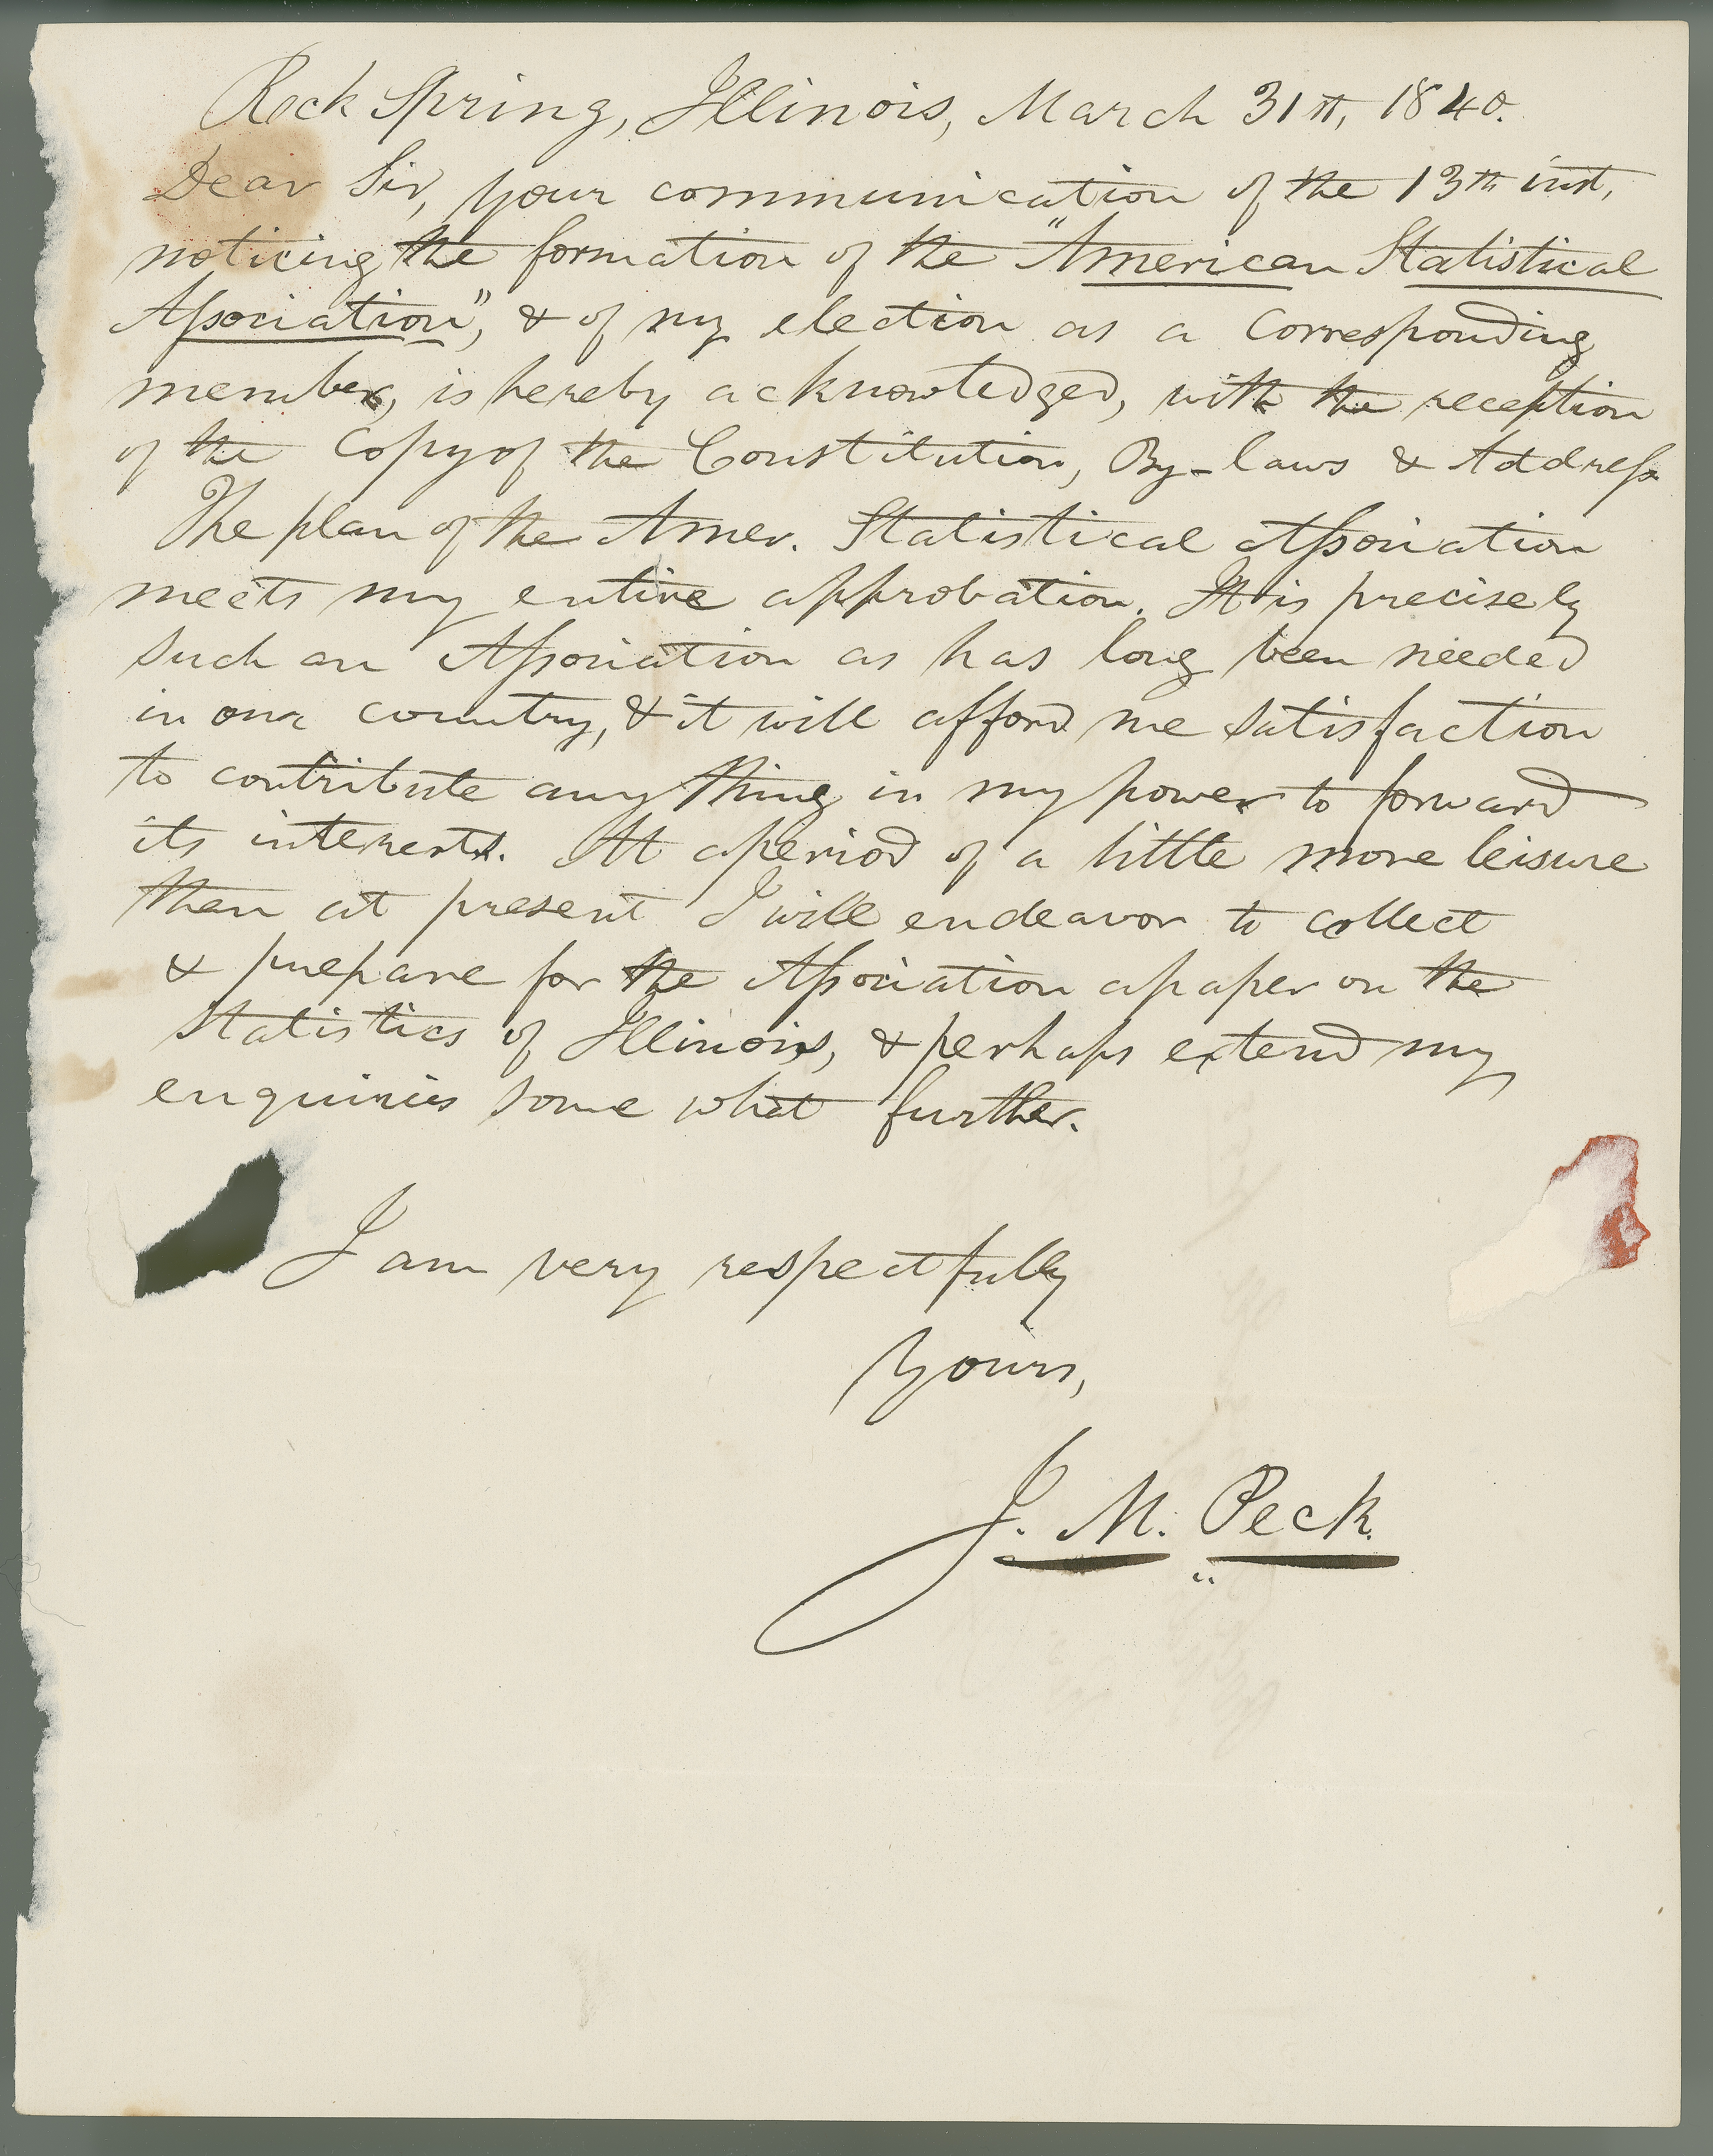 Rock Spring, Illinois, March 31st, 1840.
Dear Sir, your communication of the 13th inst,
noticing the formation of the "American Statistical
Association", & of my election as a Corresponding
member, is hereby acknowledged, with the reception
of the Copy of the Constitution, By-laws & Address
The plan of the Amer. Statistical Association
meets my entire approbation. It is precisely
such an Association as has long been needed
in our country, & it will afford me satisfaction
to contribute any thing in my power to forward
its interests. At a period of a little more leisure
than at present I will endeavor to collect
& prepare for the Association a paper on the
Statistics of Illinois, & perhaps extend my
enquiries some what further.
I am very respectfully
Yours,
J. M. Peck.